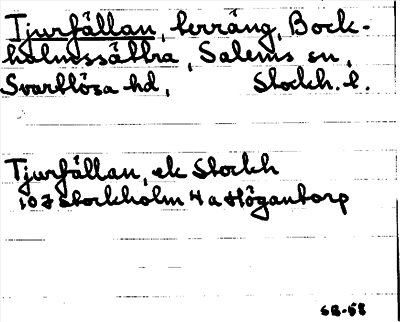 Tjurfällan, terräng, Bock-
holmssättra, Salems sn,
Svartlösa hd, Stockh. l.
Tjurfällan, ek Stockh
107 Stockholm 4a Högantorp
SB-58